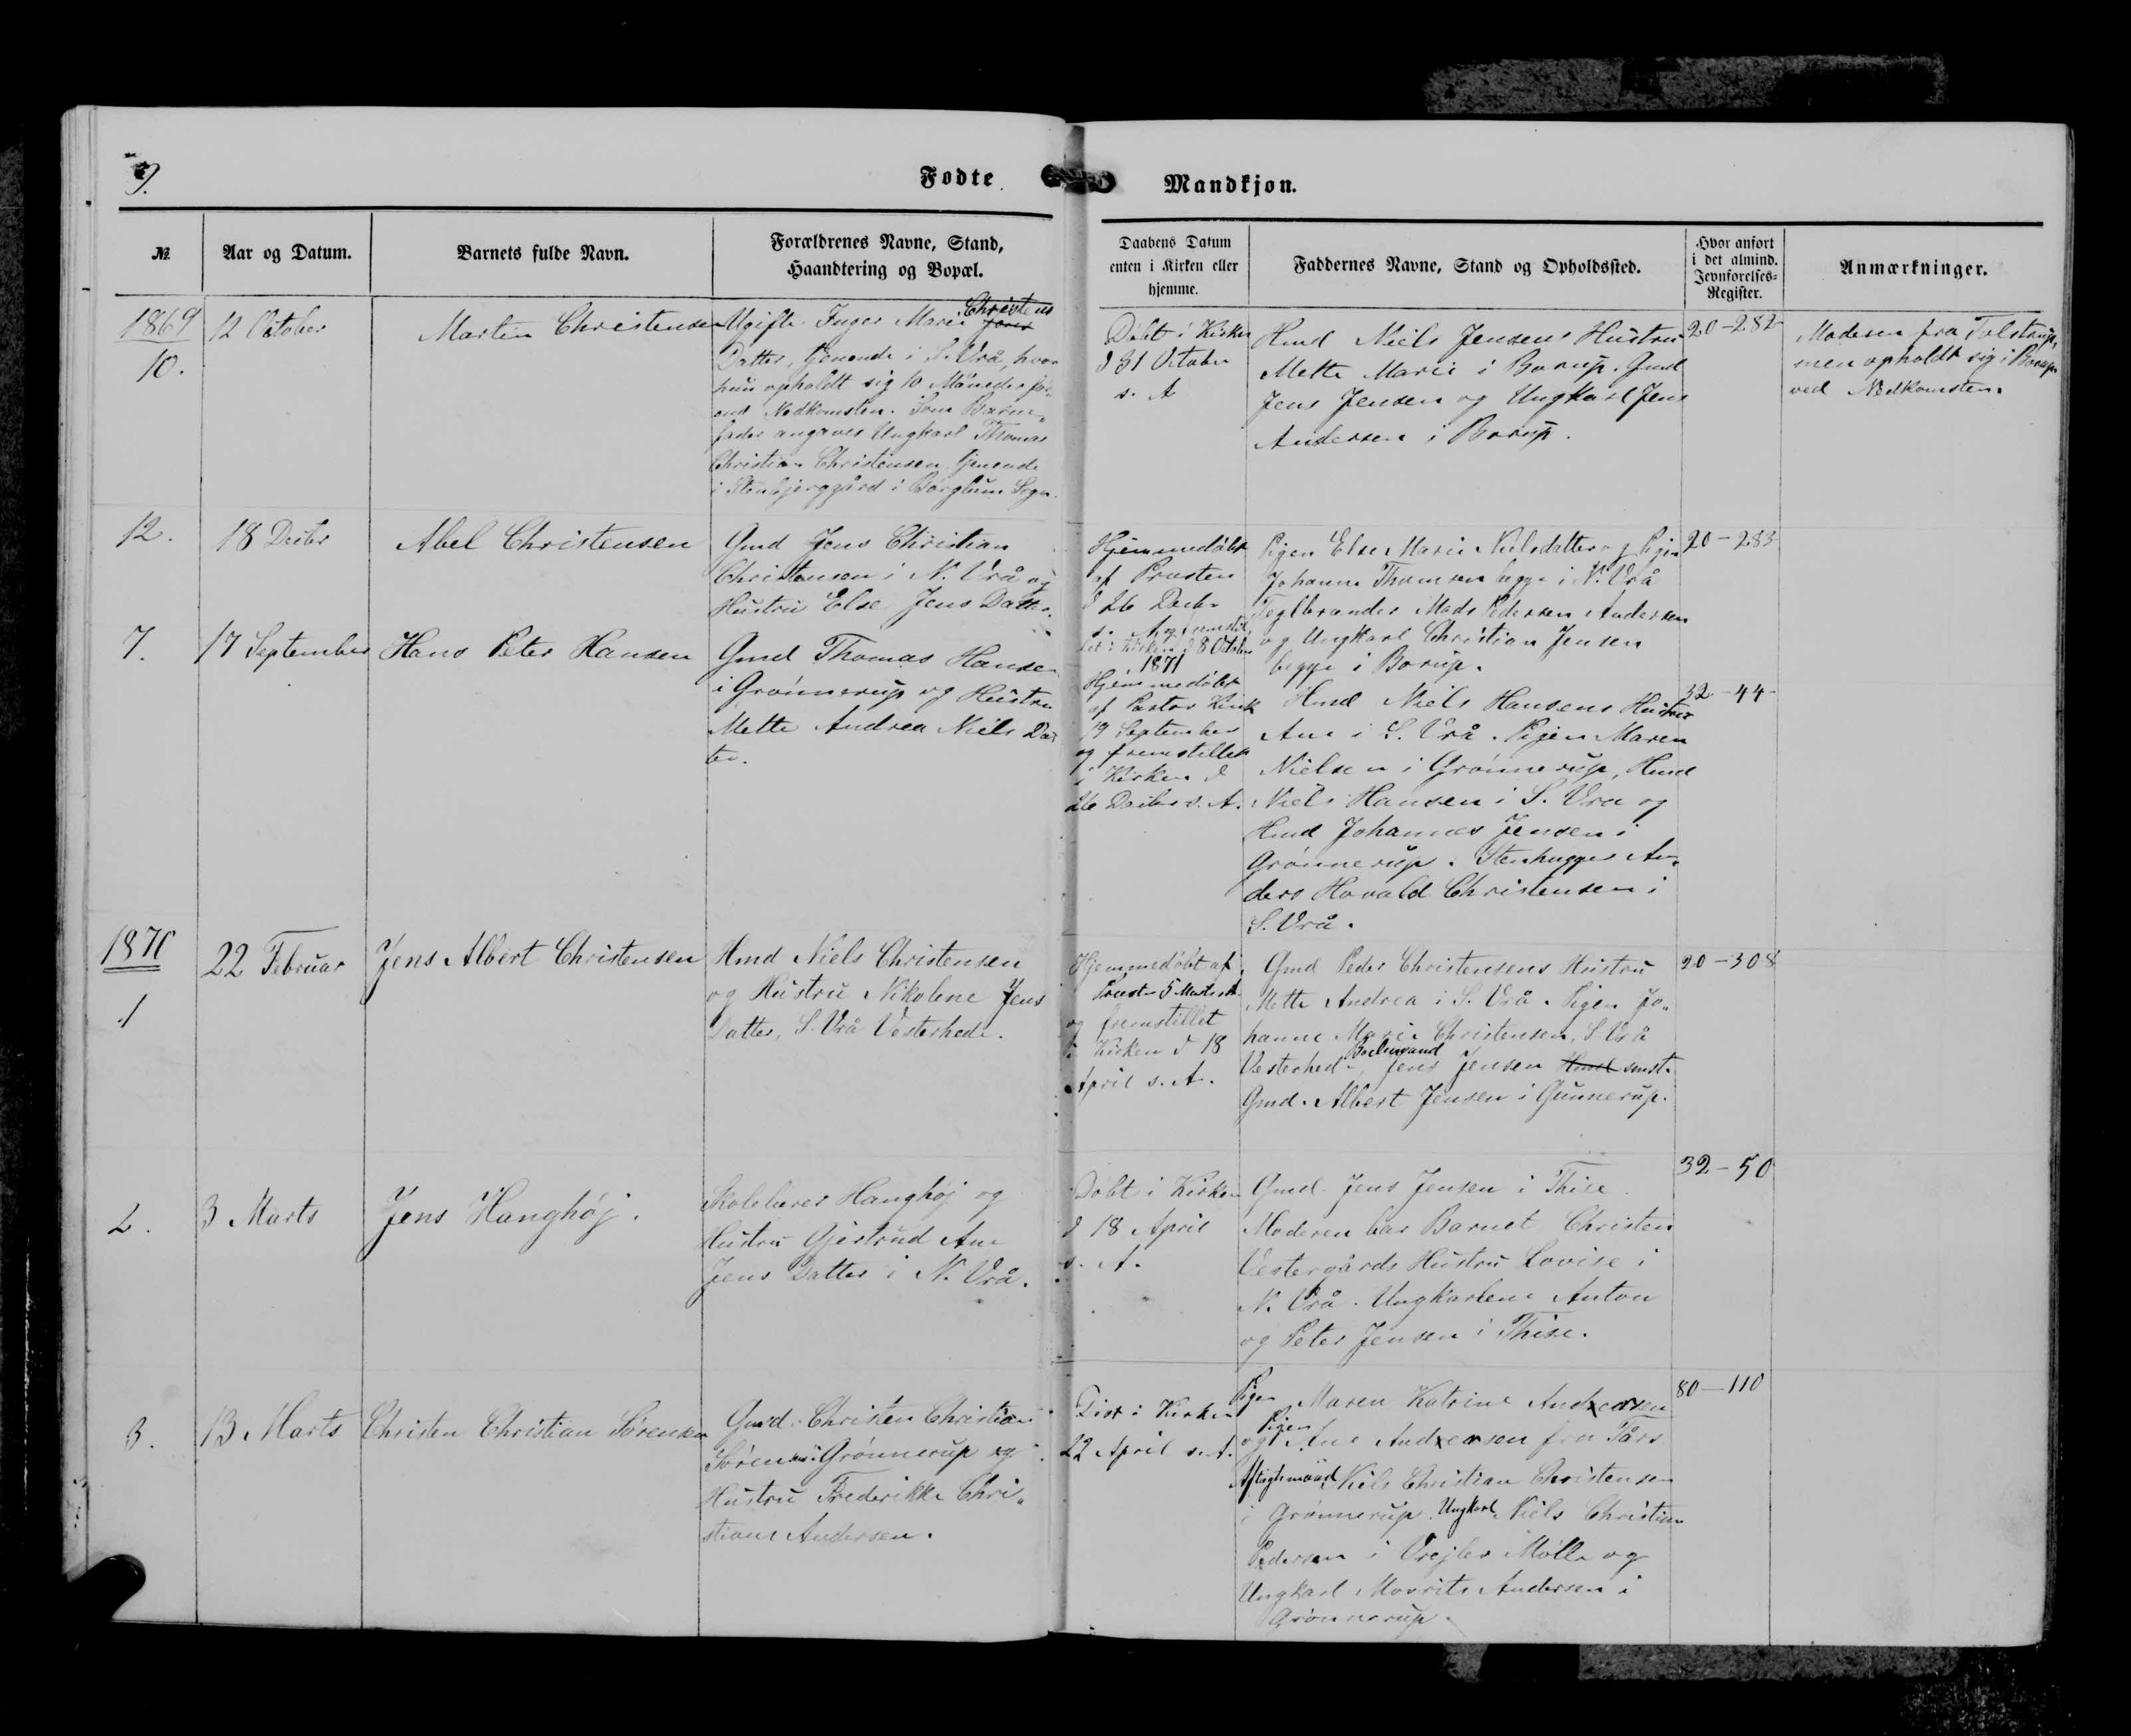 9.
Fodte
Mandkjon.
№
Aar og Datum.
Barnets fulde Navn.
Forældrenes Navne, Stand,
Haandtering og Bopæl.
Daabens Datum
enten i Kirken eller
hjemme.
Faddernes Navne, Stand og Opholdssted.
Hvor anført
i det almind.
Jevnførelses-
Register.
Anmærkninger.
1869
10.
12 October
Martin Christensen
Ugifte Inger Marie Christens
Jens
Datter, tjenende i S. Vrå, hvor
hun opholdt sig 10 Måneder før
end Nedkomsten. Som Barne-
fader angaves Ungkarl Thomas
Christian Christensen tjenende
i Stenbjerggård i Børglum Sogn.
Døbt i Kirken
d 31 October
s. A
Hmd Niels Jensens Hustru
Mette Marie i Borup. Gmd
Jens Jensen og Ungkarl Jens
Andersen i Borup.
20-282
Moderen fra Tolstrup,
men opholdt sig i Borup
ved Nedkomsten.
12.
18 Decbr
Abel Christensen
Gmd Jens Christian
Christensen i N. Vrå og
Hustru Else Jens Datter.
Hjemmedøbt
af Præsten
d 26 Decbr
s. A og fremstil-
let i Kirken d 8 October
1871
Pigen Else Marie Nielsdatter og Pigen
Johanne Thomsen begge i N. Vrå
Teglbrænder Mads Pedersen Andersen
og Ungkarl Christian Jensen
begge i Borup.
20-283
7.
17 September
Hans Peter Hansen
Gmd Thomas Hansen
i Grønnerup og Hustru
Mette Andrea Niels Dat
ter.
Hjemmedøbt
af Pastor Kirk
19 September
og fremstillet
i Kirken d
26 Decbr s. A.
Hmd Niels Hansens Hustru
Ane i S. Vrå. Pigen Maren
Nielsen i Grønnerup, Hmd
Niels Hansen i S. Vra og
Hmd Johannes Jensen i
Grønnerup. Stenhugger An-
ders Havald Christensen i
S. Vrå.
32-44
1870
1
22 Februar
Jens Albert Christensen
Hmd Niels Christensen
og Hustru Nikolene Jens
Datter, S. Vrå Vesterhede.
Hjemmedøbt af
Præsten 5 Marts s. A.
og fremstillet
i Kirken d 18
April s. A.
Gmd Peder Christensens Hustru
Mette Andrea i S. Vrå. Pigen Jo-
hanne Marie Christensen, S. Vrå
Vesterhede, Boelsmand Jens Jensen Hmd smst.
Gmd. Albert Jensen i Gunnerup.
20-308
2.
3 Marts
Jens Hanghøj.
Skolelærer Hanghøj og
Hustru Gjertrud Ane
Jens Datter i N. Vrå.
Døbt i Kirken
d 18 April
s. A.
Gmd. Jens Jensen i Thise
Moderen bar Barnet Christen
Vestergårds Hustru Lovise i
N. Vrå. Ungkarlene Anton
og Peter Jensen i Thise.
32-50
3.
13 Marts
Christen Christian Sørensen
Gmd. Christen Christian
Sørensen i Grønnerup og
Hustru Frederikke Chri-
stiane Andersen.
i Kirken
22 April s. A.
Pigen Maren Katrine Andersen
og Pigen Ane Andersen fra Tårs
Aftægtsmand Niels Christian Christensen
i Grønnerup. Ungkarl Niels Christian
Pedersen i Vrejlev Mølle og
Ungkarl Movrits Andersen i
Grønnerup.
80-110